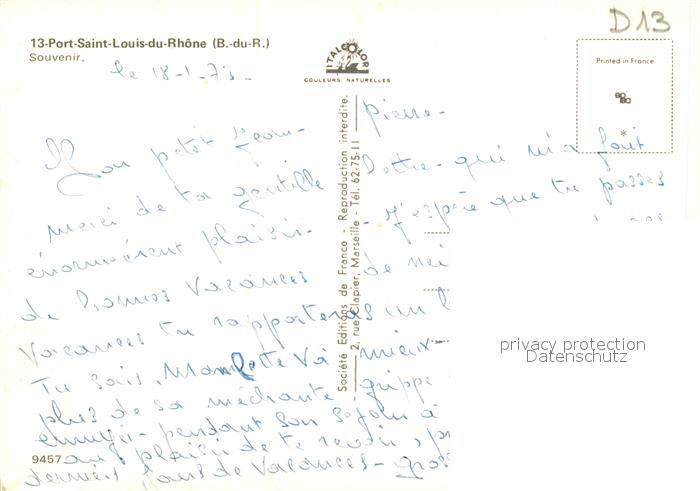 D13
13-Port-Saint-Louis-du-Rhône (B.-du-R.)
Souvenir.
ITALCOLOR
COULEURS NATURELLES
Printed in France
le 18-1-73-
Mon petit Jean-pierre-
merci de ta gentille lettre-qui m'a fait
énormément plaisir-J'espère que tu passes
de bonnes vacances de
vacances tu rapporteras un
Tu sais, va mieux-
plus de sa méchante grippe
pendant son séjour à
au plaisir de te revoir,
derniers jours de vacances-
9457
Société Editions de France - Reproduction interdite.
2, rue Clapier, Marseille - Tél. 62-75-11
privacy protection
Datenschutz